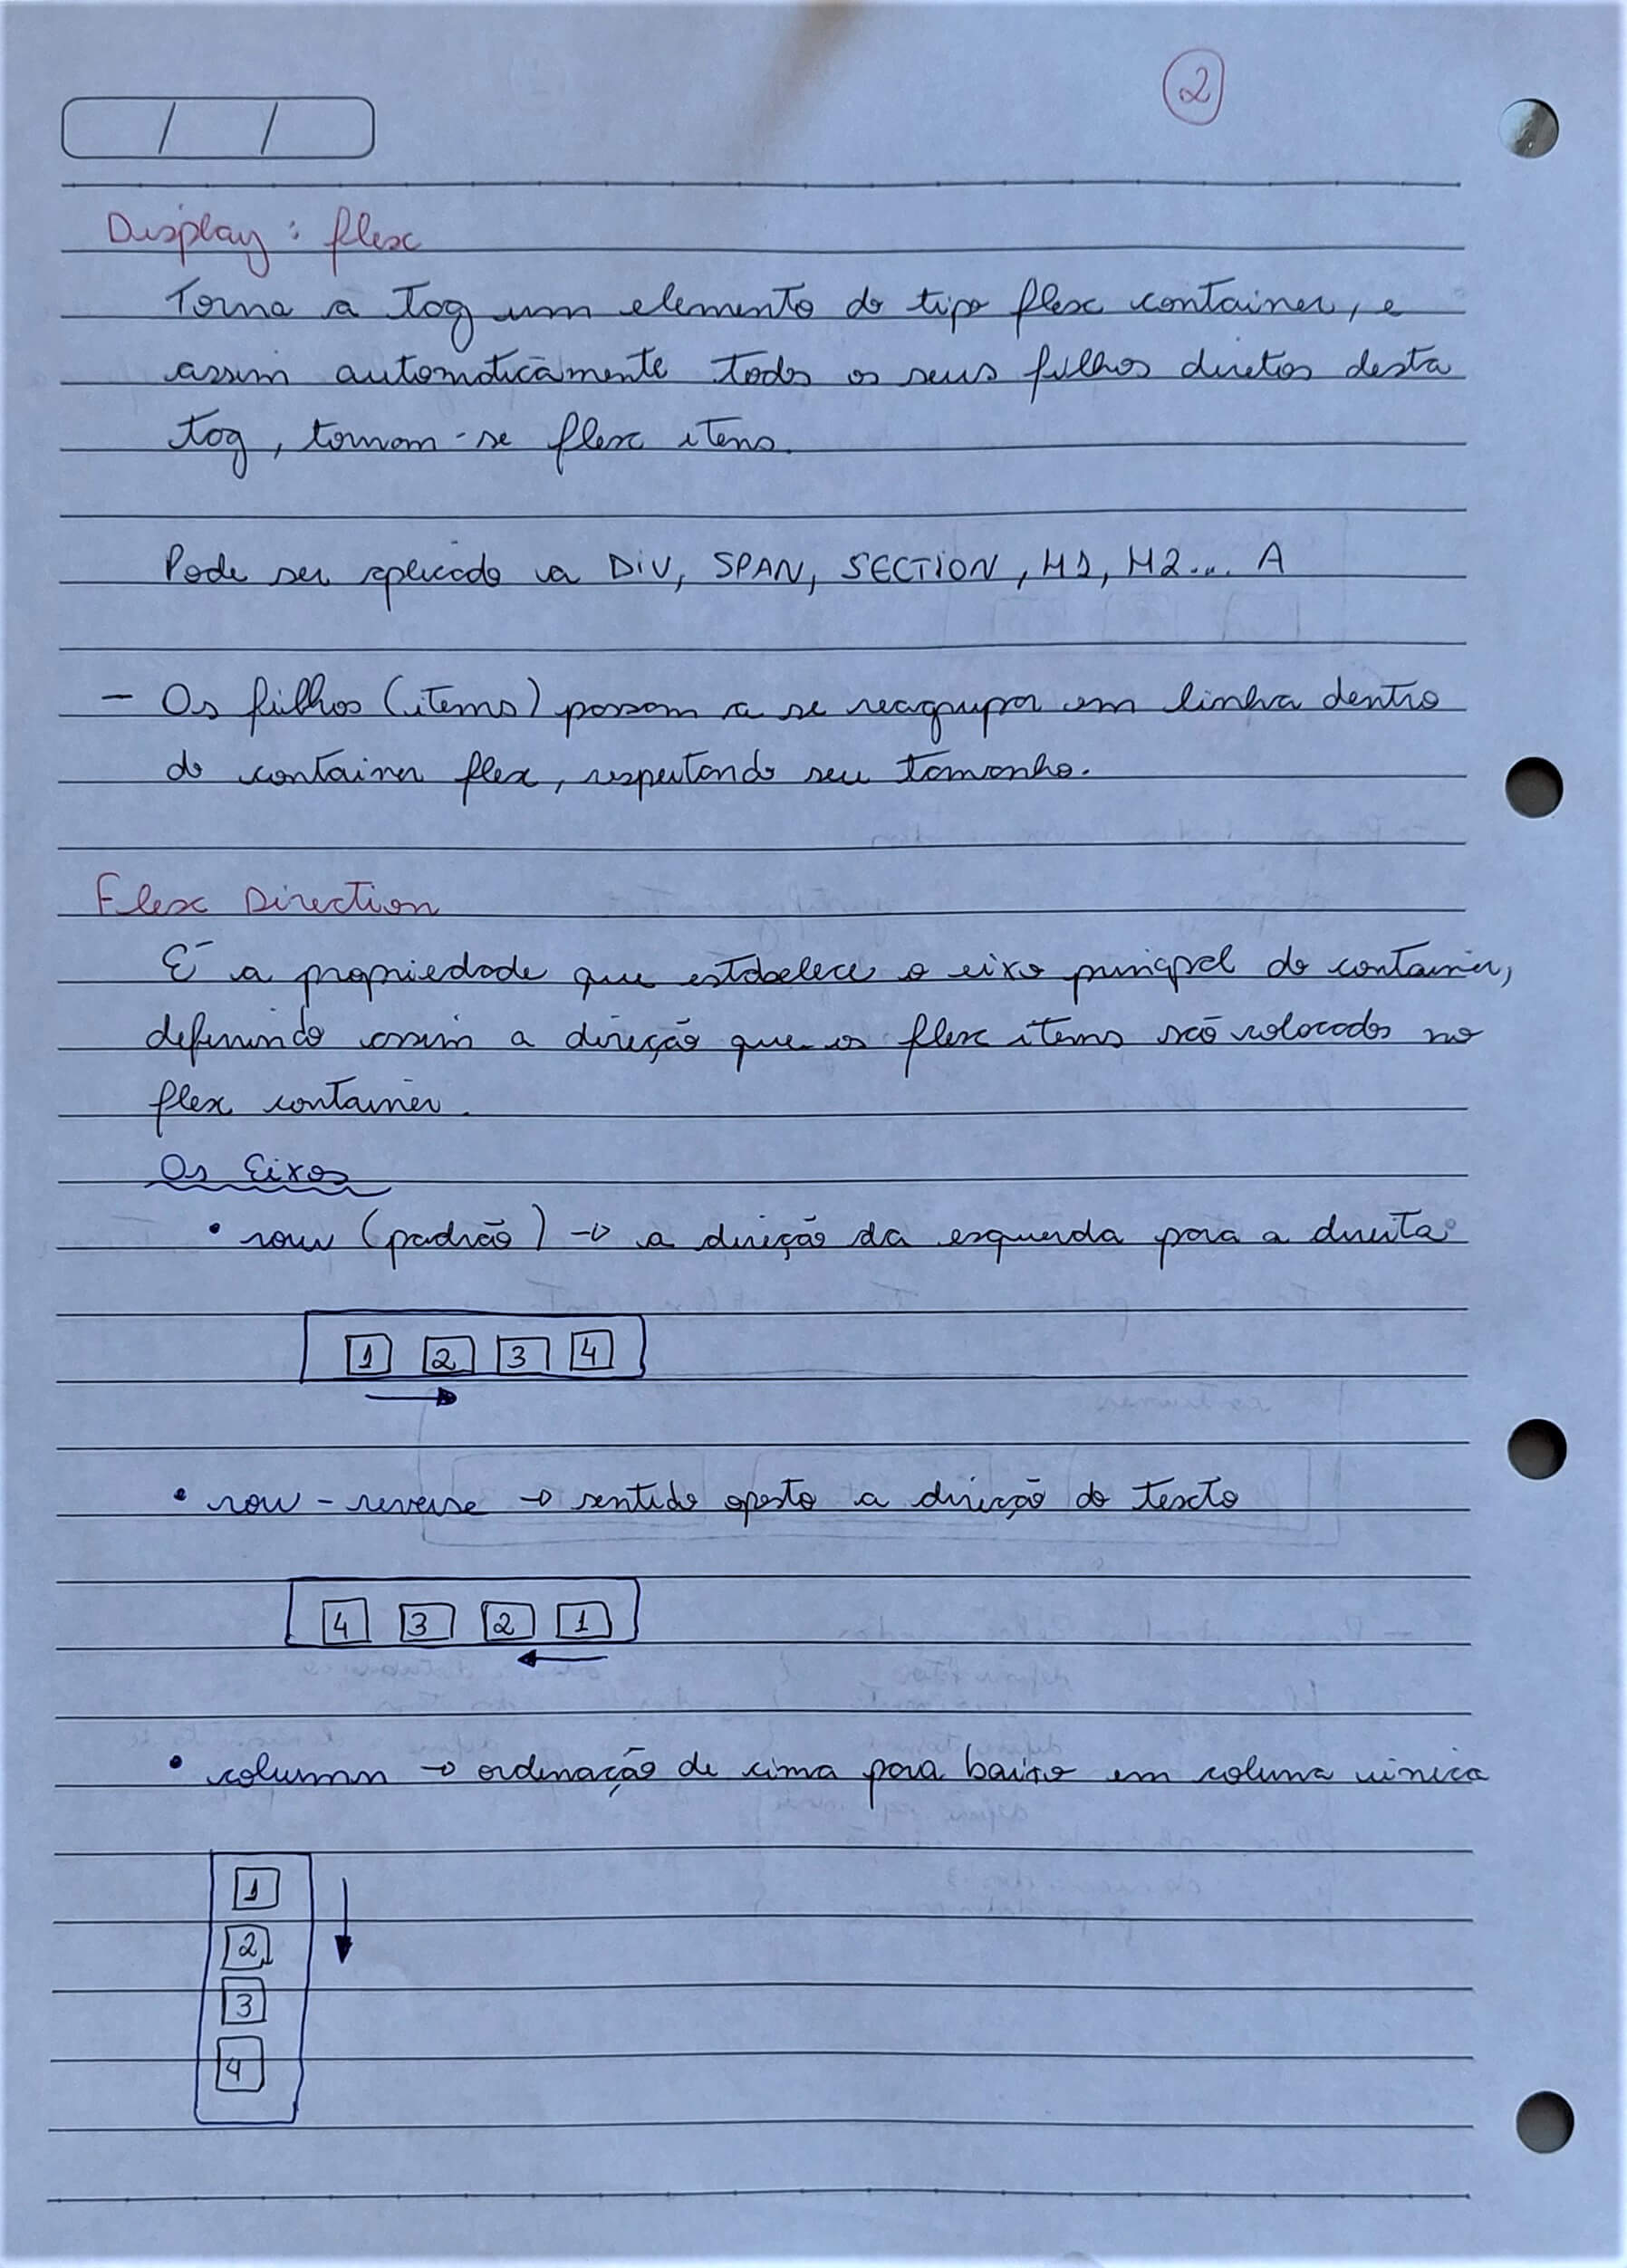 2
/ /
Display: flex
Torna a tag um elemento do tipo flex container, e
assim automáticamente todos os seus filhos diretos desta
tag, tornam-se flex itens.
Pode ser aplicado a DIV, SPAN, SECTION, H1, H2... A
- Os filhos (itens) passam a se reagrupar em linha dentro
do container flex, respeitando seu tamanho.
Flex Direction
É a propriedade que estabelece o eixo principal do container,
definindo assim a direção que os flex itens são colocados no
flex container.
Os Eixos
• row (padrão) → a direção da esquerda para a direita
1 2 3 4
• row-reverse → sentido oposto a direção do texto
4 3 2 1
• column → ordenação de cima para baixo em coluna única
1
2
3
4